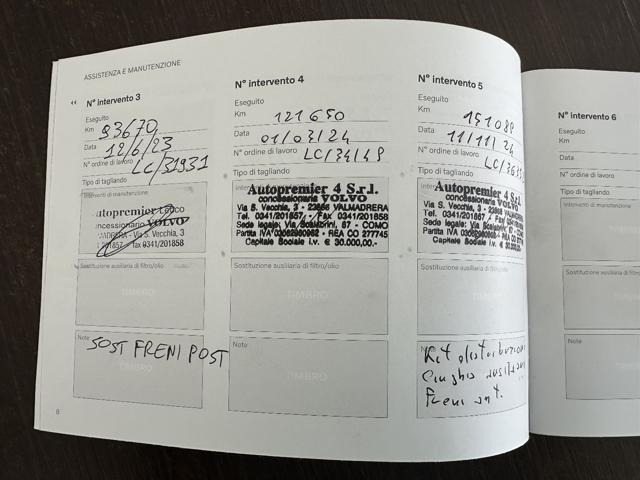 ASSISTENZA E MANUTENZIONE
N° intervento 3
Eseguito
Km 93670
Data 12/6/23
N° ordine di lavoro LC/31931
Tipo di tagliando
Interventi di manutenzione
Autopremier Lecco
concessionario VOLVO
Via S. Vecchia, 3
201857 - fax 0341/201858
Sostituzione ausiliaria di filtro/olio
TIMBRO
Note
SOST FRENI POST
TIMBRO
8
N° intervento 4
Eseguito
Km 121650
Data 01/03/24
N° ordine di lavoro LC/34149
Tipo di tagliando
Autopremier 4 S.r.l.
concessionaria VOLVO
Via S. Vecchia, 3 - 23868 VALMADRERA
Tel. 0341/201857 - Fax 0341/201858
Sede legale: Via Scalabrini, 67 - COMO
Partita IVA - REA CO 277745
Capitale Sociale i.v. € 30.000,00.-
Sostituzione ausiliaria di filtro/olio
TIMBRO
Note
TIMBRO
N° intervento 5
Eseguito
Km 151089
Data 11/11/24
N° ordine di lavoro LC/363
Tipo di tagliando
Autopremier 4 S.r.l.
concessionaria VOLVO
Via S. Vecchia, 3 - 23868 VALMADRERA
Tel. 0341/201857 - Fax 0341/201858
Sede legale: Via Scalabrini, 67 - COMO
Partita IVA - REA CO 277745
Capitale Sociale i.v. € 30.000,00.-
Sostituzione ausiliaria di filtro/olio
TIMBRO
Note
Kit distribuzione
Cinghia
Freni ant.
N° intervento 6
Eseguito
Km
Data
N° ordine di lavoro
Tipo di tagliando
Interventi di manutenzione
Sostituzione ausiliaria
Note